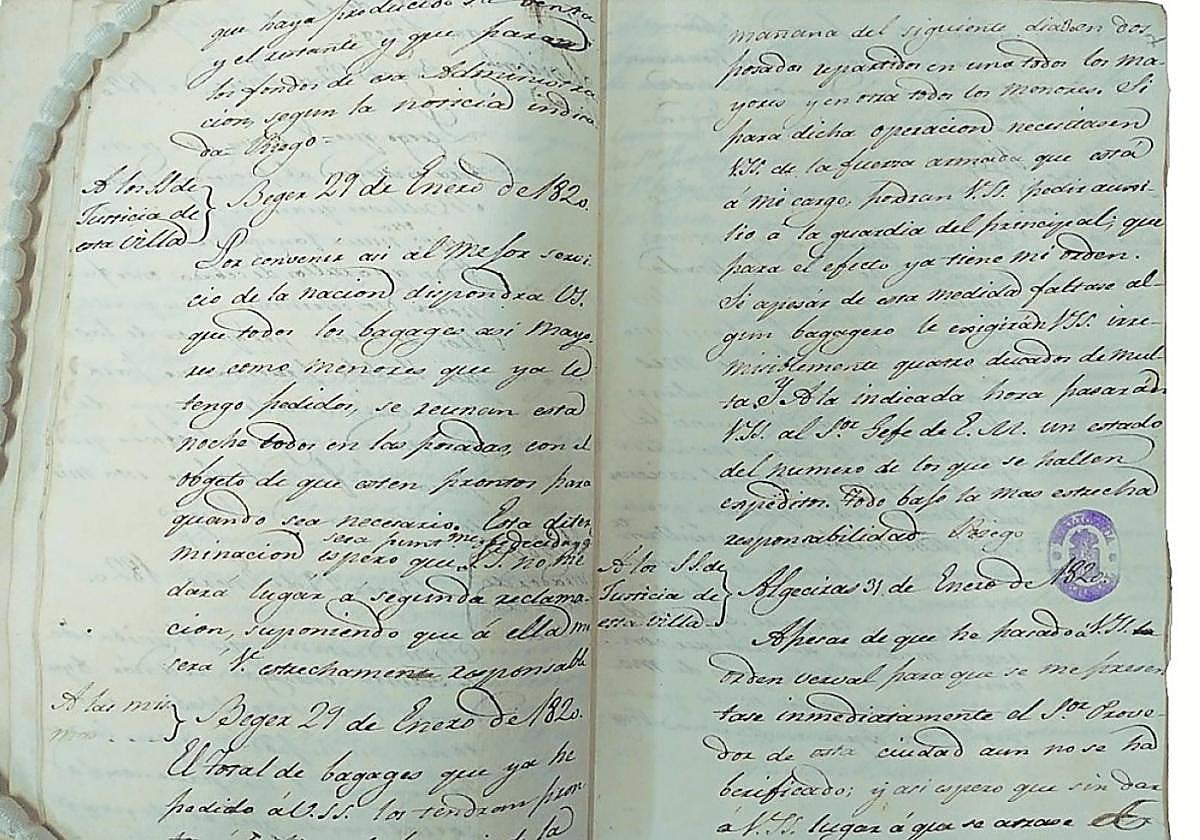 que haya producido su venta
y el restante y que pararan
los fondos de esa Administra-
cion, segun la noticia indica-
da- Riego-
A los SS. de
Justicia de
esta villa
Beger 29 de Enero de 1820.
Por convenir asi al mejor servi-
cio de la nacion dispondra VS.
que todos los bagages asi mayo-
res como menores que ya le
tengo pedidos, se reunan esta
noche todos en las posadas, con el
obgeto de que esten prontos para
quando sea necesario. Esta diter-
sera puntmte obedecida y q
minacion espero que VS. no me
dara lugár a segunda reclama-
cion, suponiendo que á ella me
será V. estrechamente responsable
A los mis
mos
Beger 29 de Enero de 1820.
El total de bagages que ya he
pedido á V.SS. los tendran pron-
mañana del siguiente dia en dos
posadas repartidos en una todos los ma-
yores y en otra todos los menores. Si
para dicha operacion necesitasen
V.SS. de la fuerza armada que está
á mi cargo, podran V.SS. pedir auxi-
lio a la guardia del principal; que
para el efecto ya tiene mi orden.
Si apesár de esta medida faltase al-
gun bagagero le exigirán V.SS. irre-
misiblemente quatro ducados de mul-
ta. Y A la indicada hora pasarán
V.SS. al Sor. Gefe de E. M. un estado
del numero de los que se hallen
expeditos. Todo bajo la mas estrecha
responsabilidad- Riego
A los SS. de
Justicia de
esta villa
Algeciras 31 de Enero de 1820.
Apesar de que he pasado á V.SS. la
orden verval para que se me presen-
tase inmediatamente el Sor. Provee-
dor de esta ciudad aun no se ha
berificado; y asi espero que sin dar
á V.SS. lugar á que se atrase